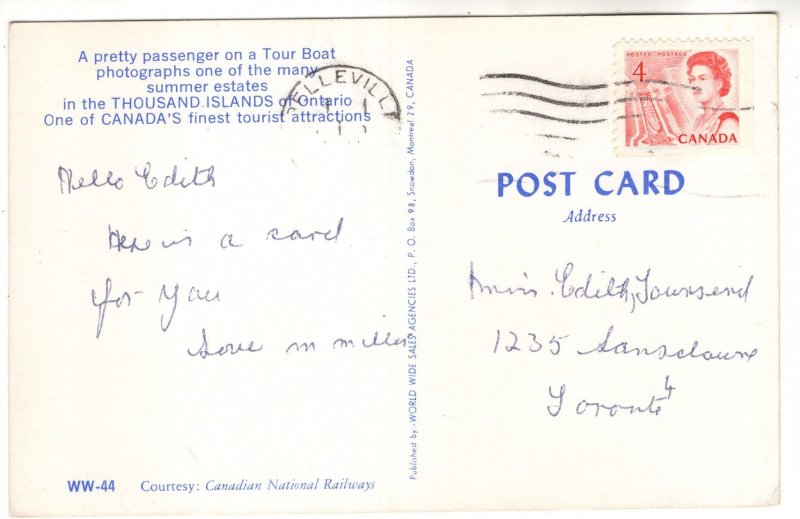 A pretty passenger on a Tour Boat
photographs one of the many
summer estates
in the THOUSAND ISLANDS of Ontario
One of CANADA'S finest tourist attractions
BELLEVILLE
Hello Edith
Here is a card
for you
Love m miller
WW-44 Courtesy: Canadian National Railways
Published by:-WORLD WIDE SALES AGENCIES LTD., P. O. Box 98, Snowdon, Montreal 29, CANADA
POSTES POSTAGE
4
CANADA
POST CARD
Address
Miss. Edith Townsend
1235 Lansdowne
Toronto 4